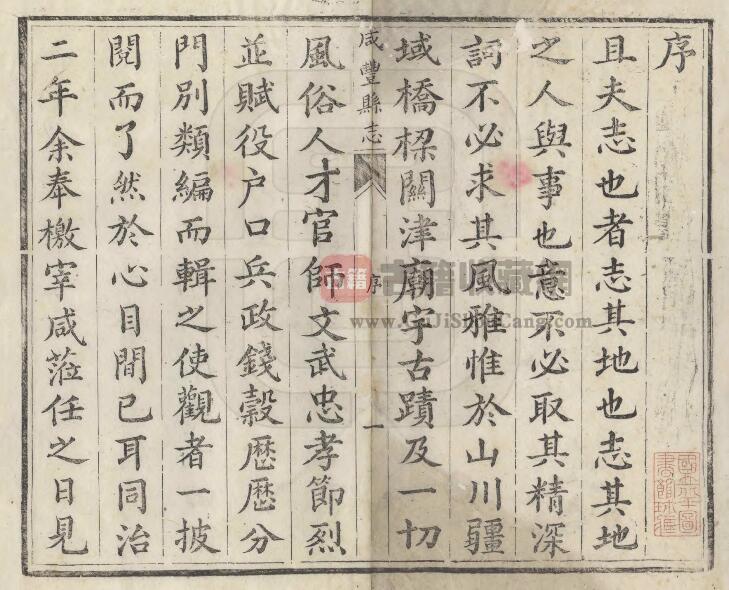 序
且夫志也者志其地也志其地
之人與事也意不必取其精深
詞不必求其風雅惟於山川疆
域橋樑關津廟宇古蹟及一切
咸豐縣志 序 一
風俗人才官師文武忠孝節烈
並賦役户口兵政錢穀歷歷分
門別類編而輯之使觀者一披
閱而了然於心目間已耳同治
二年余奉檄宰咸蒞任之日見
古籍 古籍收藏网